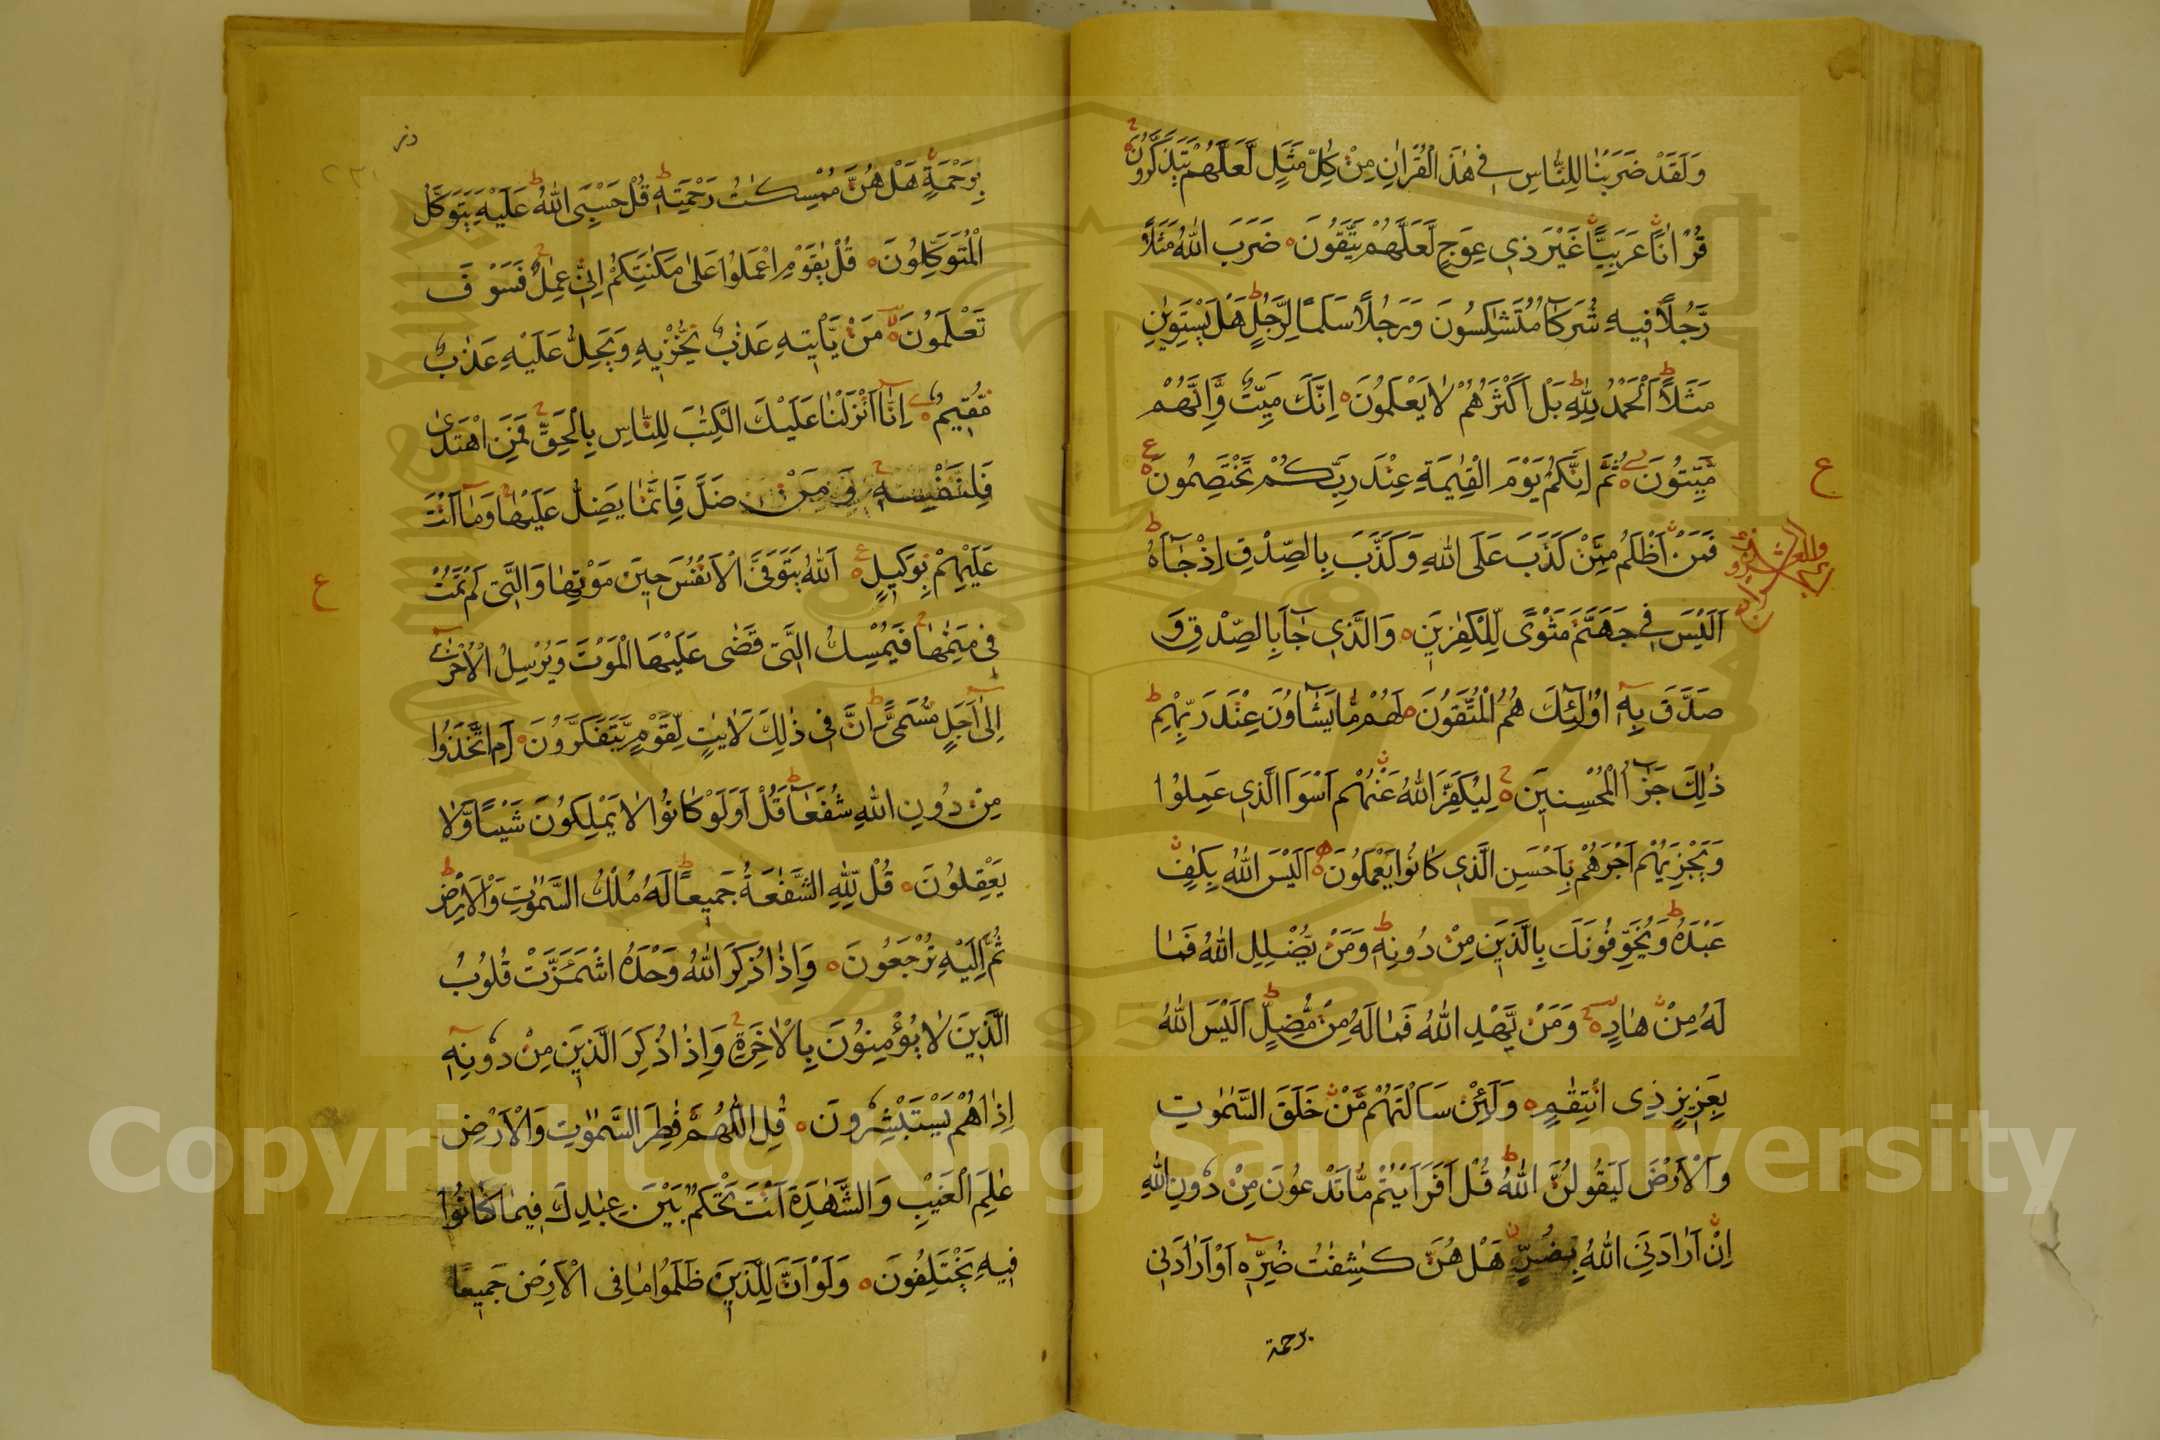 وَلَقَدْ ضَرَبْنَا لِلنَّاسِ فِي هٰذَا الْقُرْاٰنِ مِنْ كُلِّ مَثَلٍ لَّعَلَّهُمْ يَتَذَكَّرُونَ
قُرْاٰنًا عَرَبِيًّا غَيْرَ ذِي عِوَجٍ لَّعَلَّهُمْ يَتَّقُونَ ضَرَبَ اللّٰهُ مَثَلًا
رَّجُلًا فِيهِ شُرَكَآءُ مُتَشٰكِسُونَ وَرَجُلًا سَلَمًا لِّرَجُلٍ هَلْ يَسْتَوِيٰنِ
مَثَلًا اَلْحَمْدُ لِلّٰهِ بَلْ اَكْثَرُهُمْ لَا يَعْلَمُونَ اِنَّكَ مَيِّتٌ وَّاِنَّهُمْ
مَّيِّتُونَ ثُمَّ اِنَّكُمْ يَوْمَ الْقِيٰمَةِ عِنْدَ رَبِّكُمْ تَخْتَصِمُونَ
ع
فَمَنْ اَظْلَمُ مِمَّنْ كَذَبَ عَلَى اللّٰهِ وَكَذَّبَ بِالصِّدْقِ اِذْ جَآءَهُ
اَلَيْسَ فِي جَهَنَّمَ مَثْوًى لِّلْكٰفِرِينَ وَالَّذِي جَآءَ بِالصِّدْقِ وَ
صَدَّقَ بِهٖ اُولٰٓئِكَ هُمُ الْمُتَّقُونَ لَهُمْ مَّا يَشَآءُونَ عِنْدَ رَبِّهِمْ
ذٰلِكَ جَزٰٓؤُا الْمُحْسِنِينَ لِيُكَفِّرَ اللّٰهُ عَنْهُمْ اَسْوَاَ الَّذِي عَمِلُوا
وَيَجْزِيَهُمْ اَجْرَهُمْ بِاَحْسَنِ الَّذِي كَانُوا يَعْمَلُونَ اَلَيْسَ اللّٰهُ بِكَافٍ
عَبْدَهُ وَيُخَوِّفُونَكَ بِالَّذِينَ مِنْ دُونِهٖ وَمَنْ يُّضْلِلِ اللّٰهُ فَمَا
لَهُ مِنْ هَادٍ وَمَنْ يَّهْدِ اللّٰهُ فَمَا لَهُ مِنْ مُّضِلٍّ اَلَيْسَ اللّٰهُ
بِعَزِيزٍ ذِي انْتِقٰمٍ وَلَئِنْ سَاَلْتَهُمْ مَّنْ خَلَقَ السَّمٰوٰتِ
وَالْاَرْضَ لَيَقُولُنَّ اللّٰهُ قُلْ اَفَرَاَيْتُمْ مَّا تَدْعُونَ مِنْ دُونِ اللّٰهِ
اِنْ اَرَادَنِيَ اللّٰهُ بِضُرٍّ هَلْ هُنَّ كٰشِفٰتُ ضُرِّهٖ اَوْ اَرَادَنِي
برحمة
٢٣١
بِرَحْمَةٍ هَلْ هُنَّ مُمْسِكٰتُ رَحْمَتِهٖ قُلْ حَسْبِيَ اللّٰهُ عَلَيْهِ يَتَوَكَّلُ
الْمُتَوَكِّلُونَ قُلْ يٰقَوْمِ اعْمَلُوا عَلٰى مَكَانَتِكُمْ اِنِّي عٰمِلٌ فَسَوْفَ
تَعْلَمُونَ مَنْ يَّأْتِيهِ عَذَابٌ يُّخْزِيهِ وَيَحِلُّ عَلَيْهِ عَذَابٌ
مُّقِيمٌ اِنَّآ اَنْزَلْنَا عَلَيْكَ الْكِتٰبَ لِلنَّاسِ بِالْحَقِّ فَمَنِ اهْتَدٰى
فَلِنَفْسِهٖ وَمَنْ ضَلَّ فَاِنَّمَا يَضِلُّ عَلَيْهَا وَمَآ اَنْتَ
عَلَيْهِمْ بِوَكِيلٍ اَللّٰهُ يَتَوَفَّى الْاَنْفُسَ حِينَ مَوْتِهَا وَالَّتِي لَمْ تَمُتْ
ع
فِي مَنَامِهَا فَيُمْسِكُ الَّتِي قَضٰى عَلَيْهَا الْمَوْتَ وَيُرْسِلُ الْاُخْرٰٓى
اِلٰٓى اَجَلٍ مُّسَمًّى اِنَّ فِي ذٰلِكَ لَاٰيٰتٍ لِّقَوْمٍ يَّتَفَكَّرُونَ اَمِ اتَّخَذُوا
مِنْ دُونِ اللّٰهِ شُفَعَآءَ قُلْ اَوَلَوْ كَانُوا لَا يَمْلِكُونَ شَيْئًا وَّلَا
يَعْقِلُونَ قُلْ لِّلّٰهِ الشَّفٰعَةُ جَمِيعًا لَهُ مُلْكُ السَّمٰوٰتِ وَالْاَرْضِ
ثُمَّ اِلَيْهِ تُرْجَعُونَ وَاِذَا ذُكِرَ اللّٰهُ وَحْدَهُ اشْمَاَزَّتْ قُلُوبُ
الَّذِينَ لَا يُؤْمِنُونَ بِالْاٰخِرَةِ وَاِذَا ذُكِرَ الَّذِينَ مِنْ دُونِهٖ
اِذَا هُمْ يَسْتَبْشِرُونَ قُلِ اللّٰهُمَّ فَاطِرَ السَّمٰوٰتِ وَالْاَرْضِ
عٰلِمَ الْغَيْبِ وَالشَّهَادَةِ اَنْتَ تَحْكُمُ بَيْنَ عِبَادِكَ فِيمَا كَانُوا
فِيهِ يَخْتَلِفُونَ وَلَوْ اَنَّ لِلَّذِينَ ظَلَمُوا مَا فِي الْاَرْضِ جَمِيعًا
Copyright © King Saud University